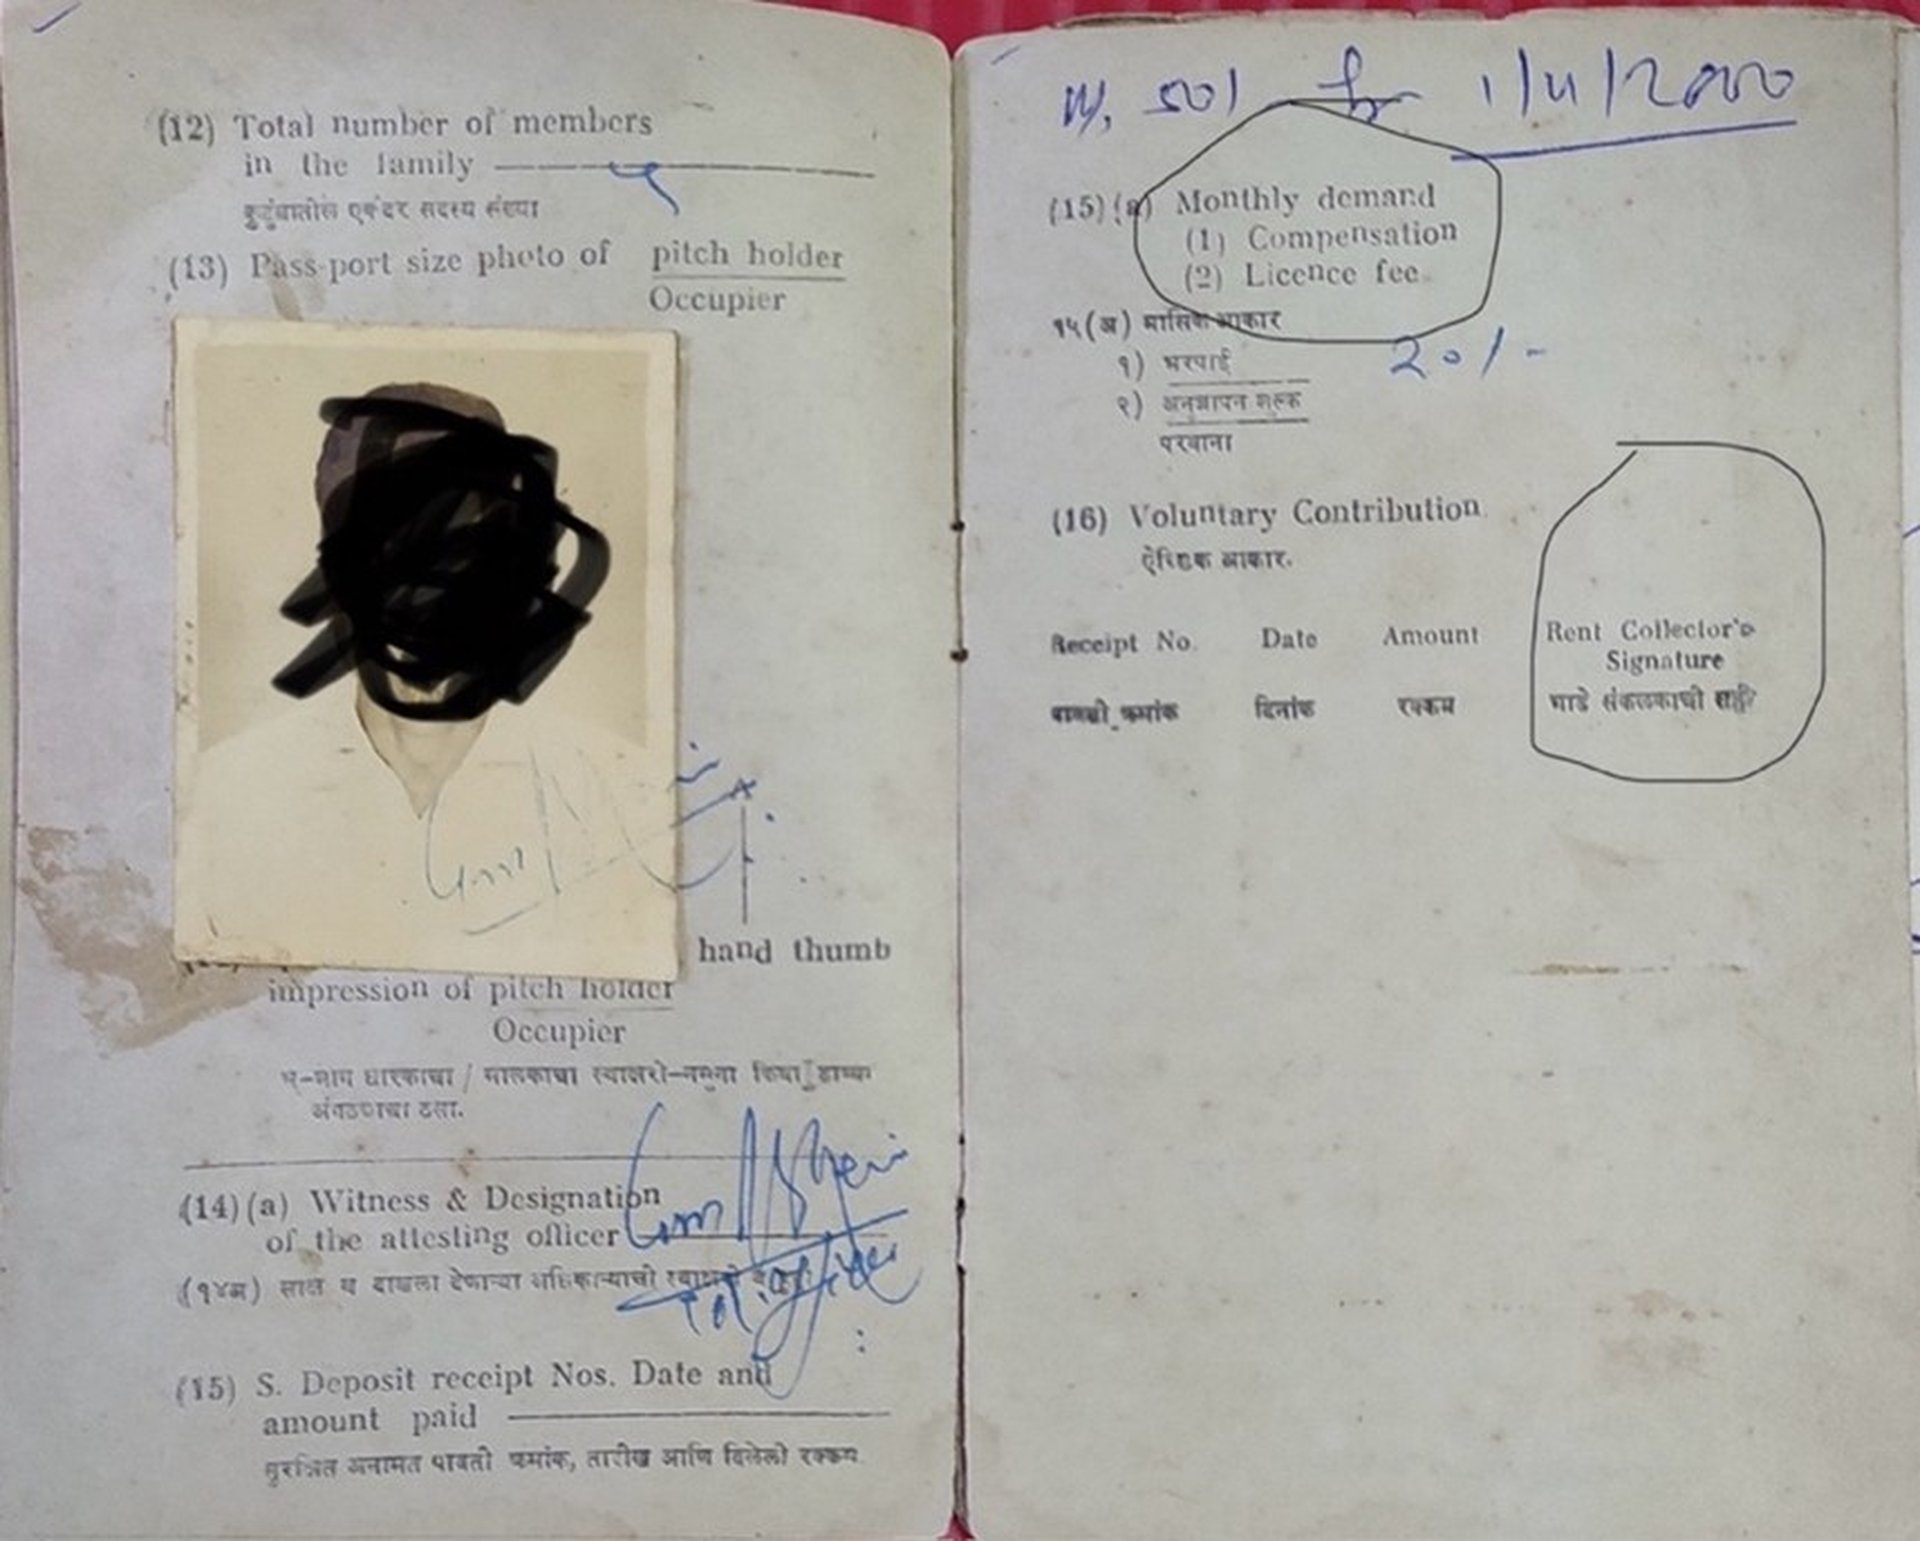 (12) Total number of members
in the family ५
कुटुंबातील एकंदर सदस्य संख्या
(13) Pass-port size photo of pitch holder
Occupier
hand thumb
impression of pitch holder
Occupier
भू-भाग धारकाचा / मालकाचा स्वाक्षरी-नमुना किंवा डाव्या
अंगठ्याचा ठसा.
(14) (a) Witness & Designation
of the attesting officer
(१४अ) साक्ष व दाखला देणाऱ्या अधिकाऱ्याची
(15) S. Deposit receipt Nos. Date and
amount paid
सुरक्षित अनामत पावती क्रमांक, तारीख आणि दिलेली रक्कम
50/ 1/4/2000
(15) (a) Monthly demand
(1) Compensation
(2) Licence fee
१५ (अ) मासिक आकार
20/-
१) भरपाई
२) अनुज्ञापन शुल्क
परवाना
(16) Voluntary Contribution
ऐच्छिक आकार.
Receipt No. Date Amount Rent Collector's
Signature
पावती क्रमांक दिनांक रक्कम भाडे संकलकाची सही